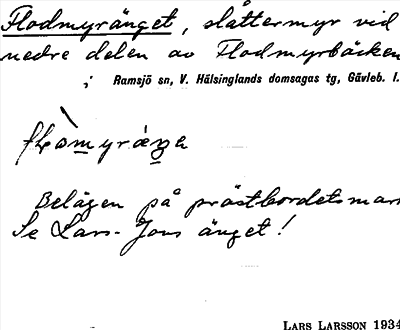 Flodmyränget, slåttermyr vid
nedre delen av Flodmyrbäcken
Ramsjö sn, V. Hälsinglands domsagas tg, Gävleb. l.
Belägen på prästbordets mar
Se Lars-Jons änget!
LARS LARSSON 1934